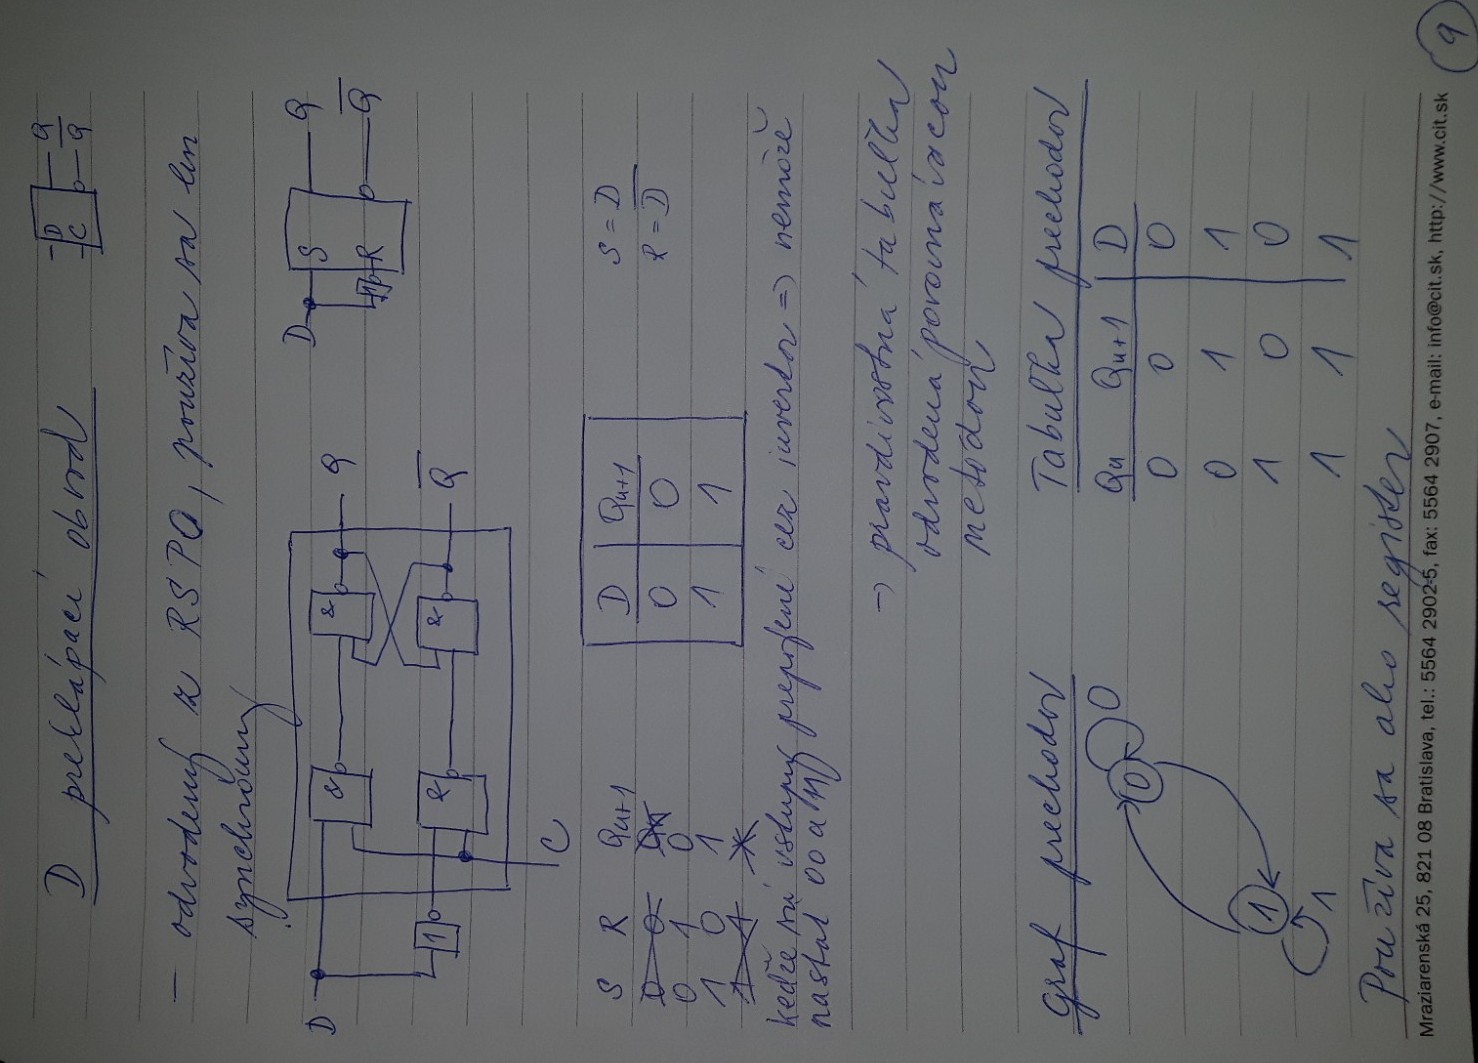 D preklápací obvod
D
C
Q
Q
– odvodený z RSPO, používa sa len
synchrónny
D
&
&
Q
1
&
&
Q
C
D
S
Q
1
R
Q
S R Qn+1
0 0 Qn
0 1 0
1 0 1
1 1 X
D Qn+1
0 0
1 1
S = D
R = D̅
keďže sú vstupy prepojené cez invertor => nemôže
nastať 00 a 11
→ pravdivostná tabuľka
odvodená porovnávacou
metódou
Graf prechodov
0
0
1
1
Tabuľka prechodov
Qn Qn+1 D
0 0 0
0 1 1
1 0 0
1 1 1
Používa sa ako register
Mraziarenská 25, 821 08 Bratislava, tel.: 5564 2902-5, fax: 5564 2907, e-mail: info@cit.sk, http://www.cit.sk
9